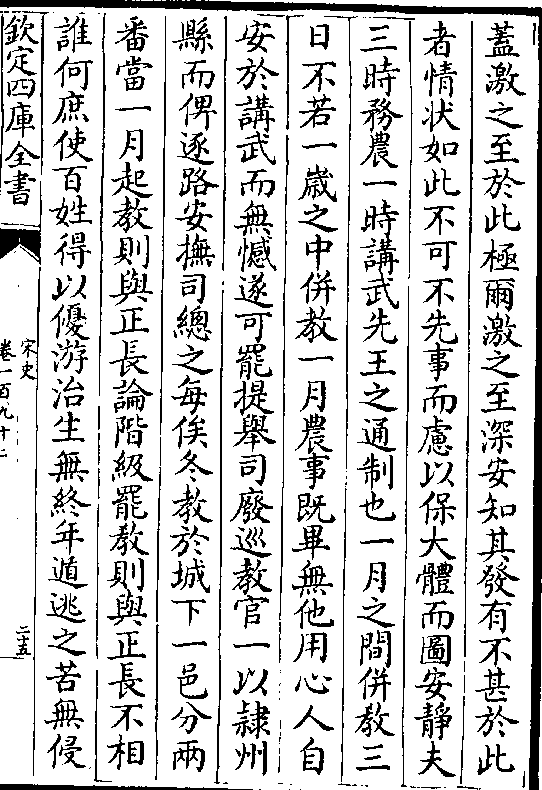 蓋激之至於此極爾激之至深安知其發有不甚於此
者情状如此不可不先事而慮以保大體而圖安靜夫
三時務農一時講武先王之通制也一月之間併教三
日不若一歳之中併教一月農事既畢無他用心人自
安於講武而無憾遂可罷提舉司廢巡教官一以隷州
縣而俾逐路安撫司總之每俟冬教於城下一邑分兩
番當一月起教則與正長論階級罷教則與正長不相
誰何庶使百姓得以優游治生無終年遁逃之苦無侵
欽定四庫全書
宋史
卷一百九十二
二十五